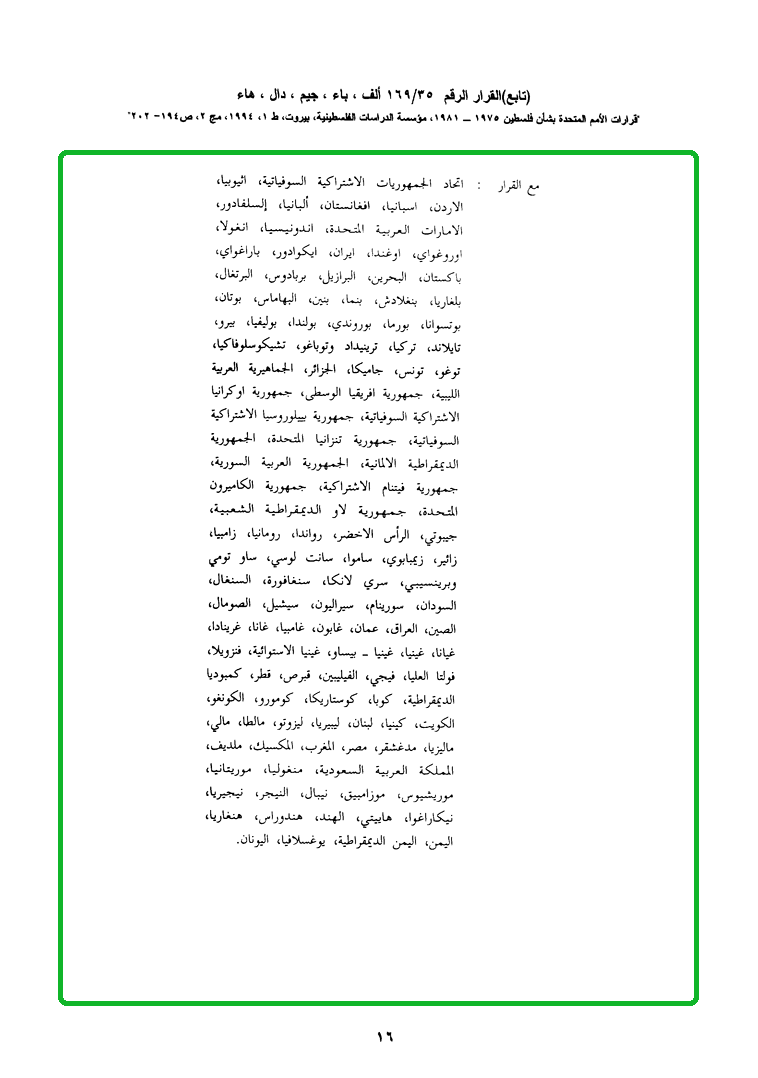 (تابع)القرار الرقم ١٦٩/٣٥ ألف ، باء ، جيم ، دال ، هاء
"قرارات الأمم المتحدة بشأن فلسطين ١٩٧٥ ــ ١٩٨١، مؤسسة الدراسات الفلسطينية، بيروت، ط ١، ١٩٩٤، مج ٢، ص١٩٤- ٢٠٢"
مع القرار : اتحاد الجمهوريات الاشتراكية السوفياتية، اثيوبيا،
الاردن، اسبانيا، افغانستان، ألبانيا، إلسلفادور،
الامارات العربية المتحدة، اندونيسيا، انغولا،
اوروغواي، اوغندا، ايران، ايكوادور، باراغواي،
باكستان، البحرين، البرازيل، بربادوس، البرتغال،
بلغاريا، بنغلادش، بنما، بنين، البهاماس، بوتان،
بوتسوانا، بورما، بوروندي، بولندا، بوليفيا، بيرو،
تايلاند، تركيا، ترينيداد وتوباغو، تشيكوسلوفاكيا،
توغو، تونس، جاميكا، الجزائر، الجماهيرية العربية
الليبية، جمهورية افريقيا الوسطى، جمهورية اوكرانيا
الاشتراكية السوفياتية، جمهورية بييلوروسيا الاشتراكية
السوفياتية، جمهورية تنزانيا المتحدة، الجمهورية
الديمقراطية الالمانية، الجمهورية العربية السورية،
جمهورية فيتنام الاشتراكية، جمهورية الكاميرون
المتحدة، جمهورية لاو الديمقراطية الشعبية،
جيبوتي، الرأس الاخضر، رواندا، رومانيا، زامبيا،
زائير، زيمبابوي، ساموا، سانت لوسي، ساو تومي
وبرينسيبي، سري لانكا، سنغافورة، السنغال،
السودان، سورينام، سيراليون، سيشيل، الصومال،
الصين، العراق، عمان، غابون، غامبيا، غانا، غرينادا،
غيانا، غينيا، غينيا ــ بيساو، غينيا الاستوائية، فنزويلا،
فولتا العليا، فيجي، الفيليبين، قبرص، قطر، كمبوديا
الديمقراطية، كوبا، كوستاريكا، كومورو، الكونغو،
الكويت، كينيا، لبنان، ليبيريا، ليزوتو، مالطا، مالي،
ماليزيا، مدغشقر، مصر، المغرب، المكسيك، ملديف،
المملكة العربية السعودية، منغوليا، موريتانيا،
موريشيوس، موزامبيق، نيبال، النيجر، نيجيريا،
نيكاراغوا، هاييتي، الهند، هندوراس، هنغاريا،
اليمن، اليمن الديمقراطية، يوغسلافيا، اليونان.
١٦